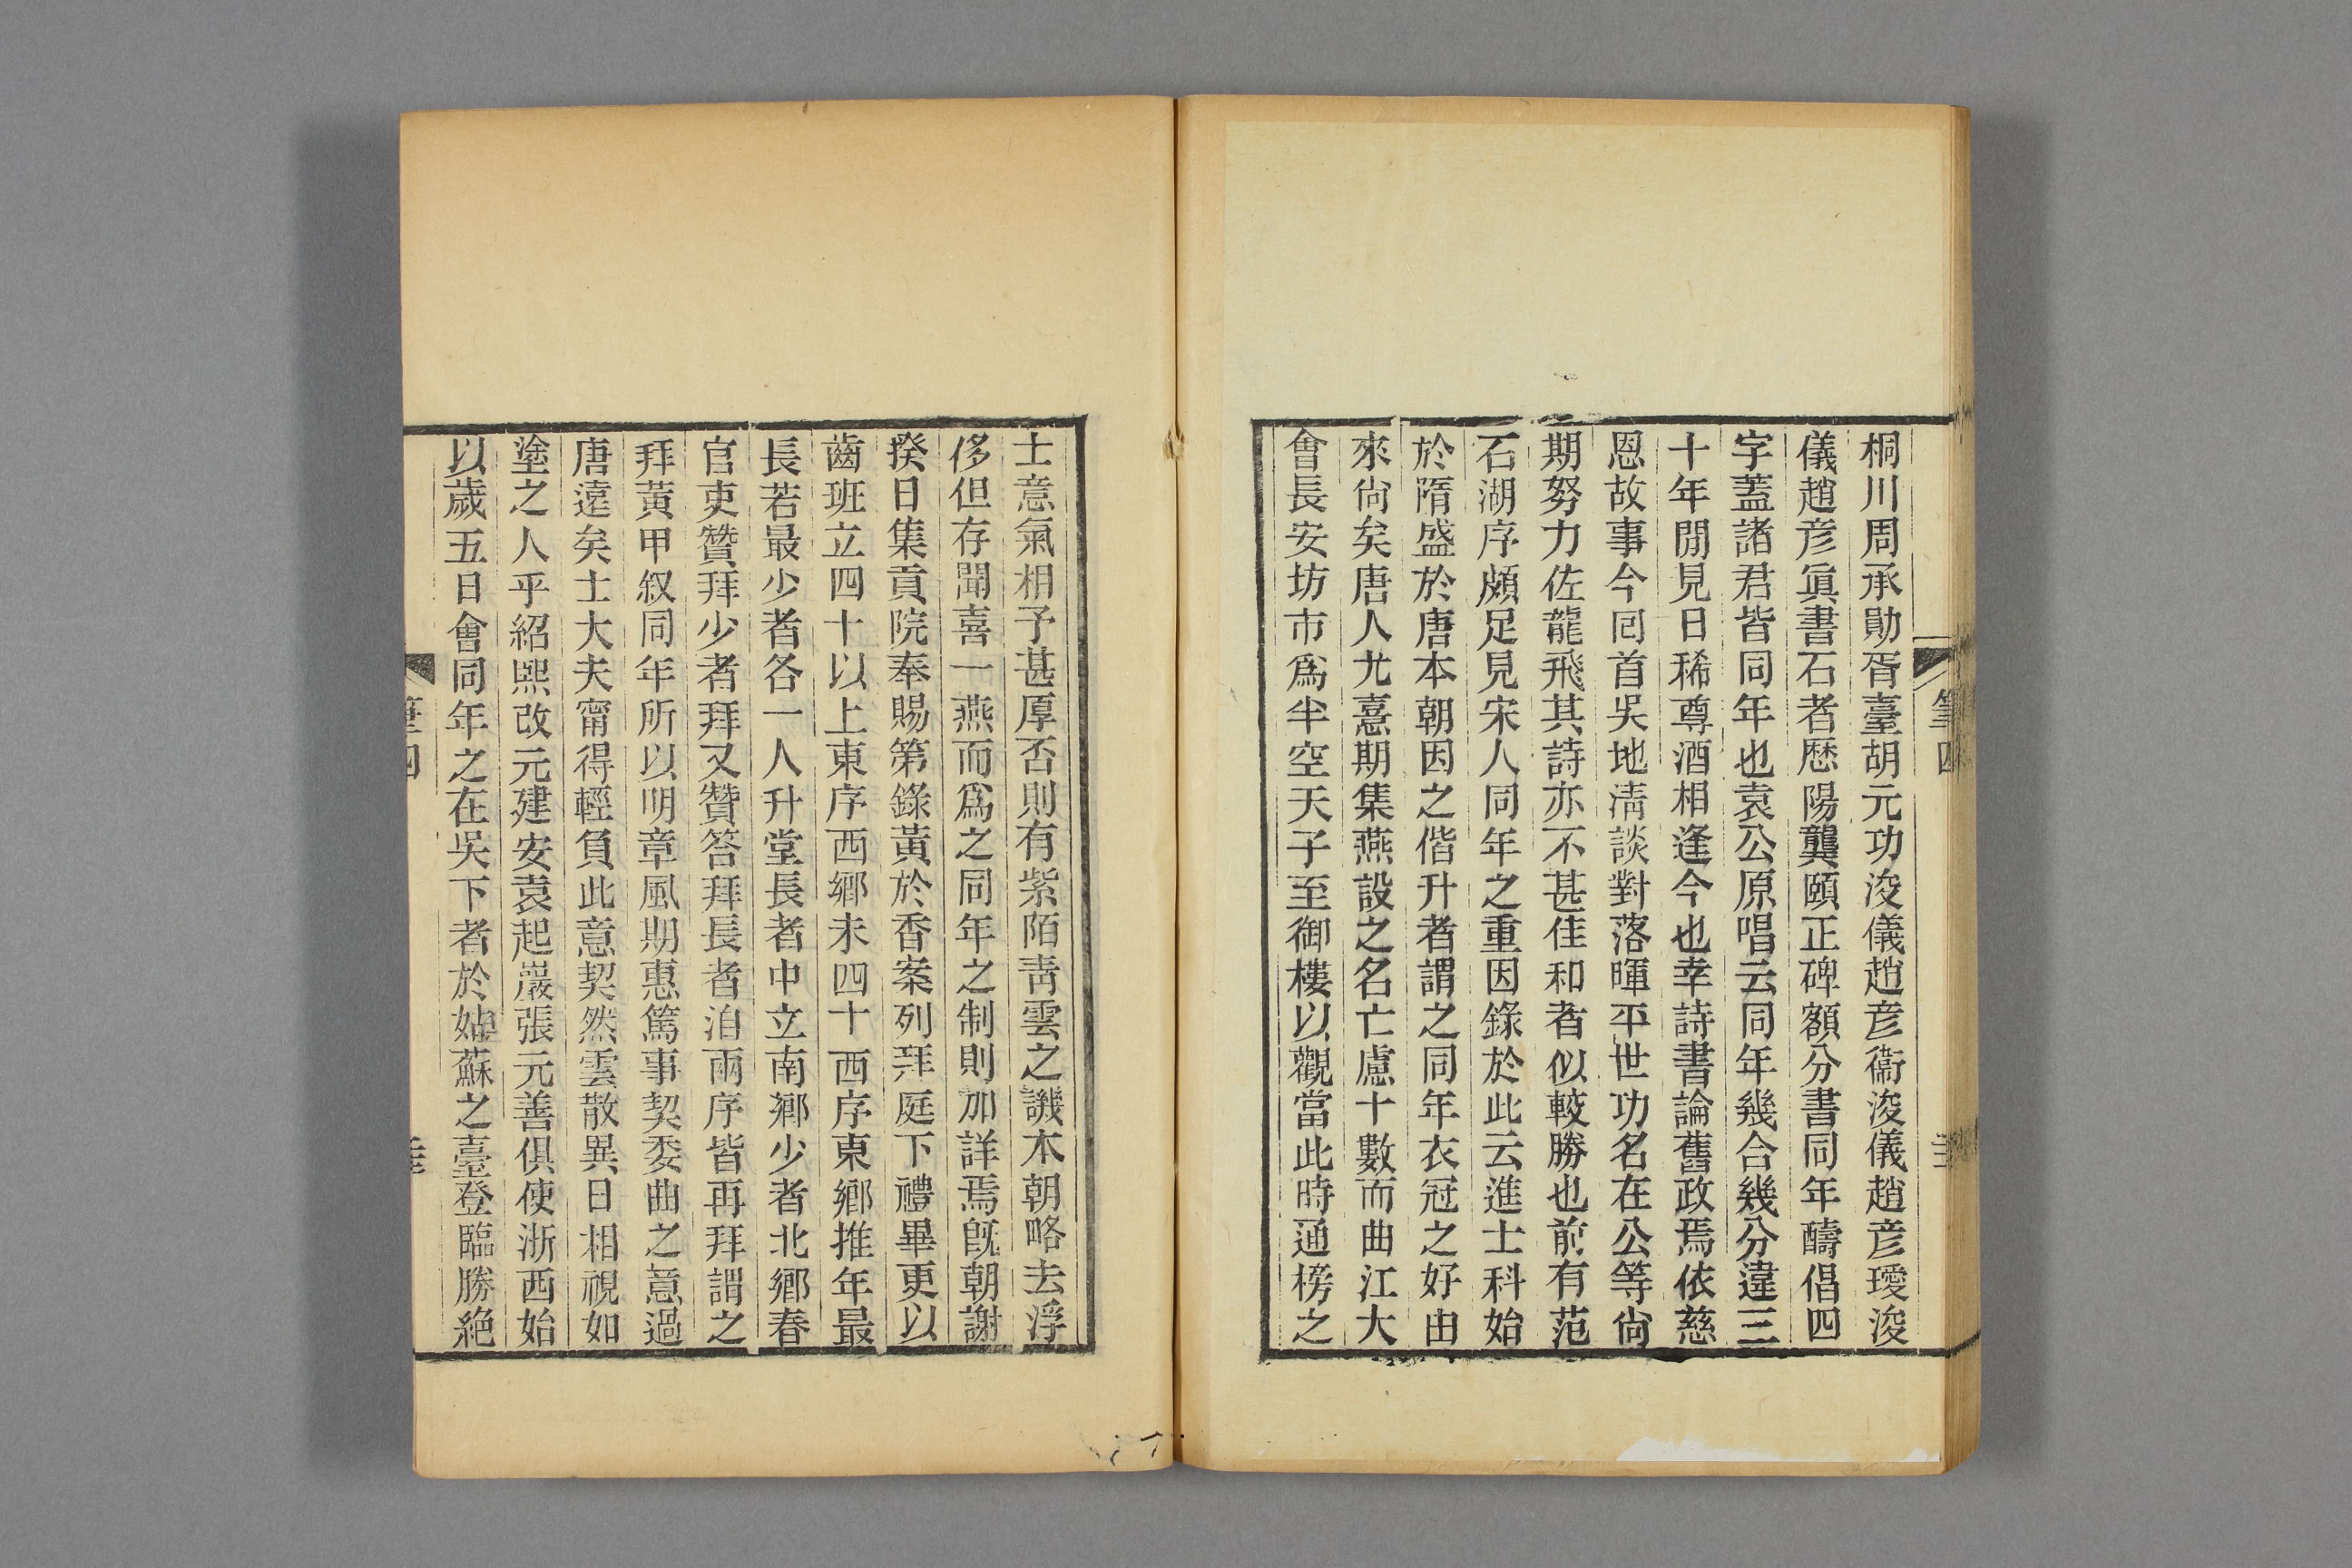 桐川周承勛胥臺胡元功浚儀趙彦衞浚儀趙彦瑷浚
儀趙彦眞書石者歴陽龔頤正碑額分書同年醻倡四
字蓋諸君皆同年也袁公原唱云同年幾合幾分違三
十年閒見日稀尊酒相逢今也幸詩書論舊政焉依慈
恩故事今囘首吳地清談對落暉平世功名在公等尙
期努力佐龍飛其詩亦不甚佳和者似較勝也前有范
石湖序頗足見宋人同年之重因錄於此云進士科始
於隋盛於唐本朝因之偕升者謂之同年衣冠之好由
來尙矣唐人尤憙期集燕設之名亡慮十數而曲江大
會長安坊市爲半空天子至御樓以觀當此時通榜之
士意氣相予甚厚否則有紫陌靑雲之譏本朝略去浮
侈但存聞喜一燕而爲之同年之制則加詳焉旣朝謝
揆日集貢院奉賜第錄黃於香案列拜庭下禮畢更以
齒班立四十以上東序西鄉未四十西序東鄉推年最
長若最少者各一人升堂長者中立南鄉少者北鄉春
官吏贊拜少者拜又贊答拜長者洎兩序皆再拜謂之
拜黃甲叙同年所以明章風期惠篤事契委曲之意過
唐遠矣士大夫甯得輕負此意契然雲散異日相視如
塗之人乎紹熙改元建安袁起巖張元善俱使浙西始
以歲五日會同年之在吳下者於姑蘇之臺登臨勝絶
筆四